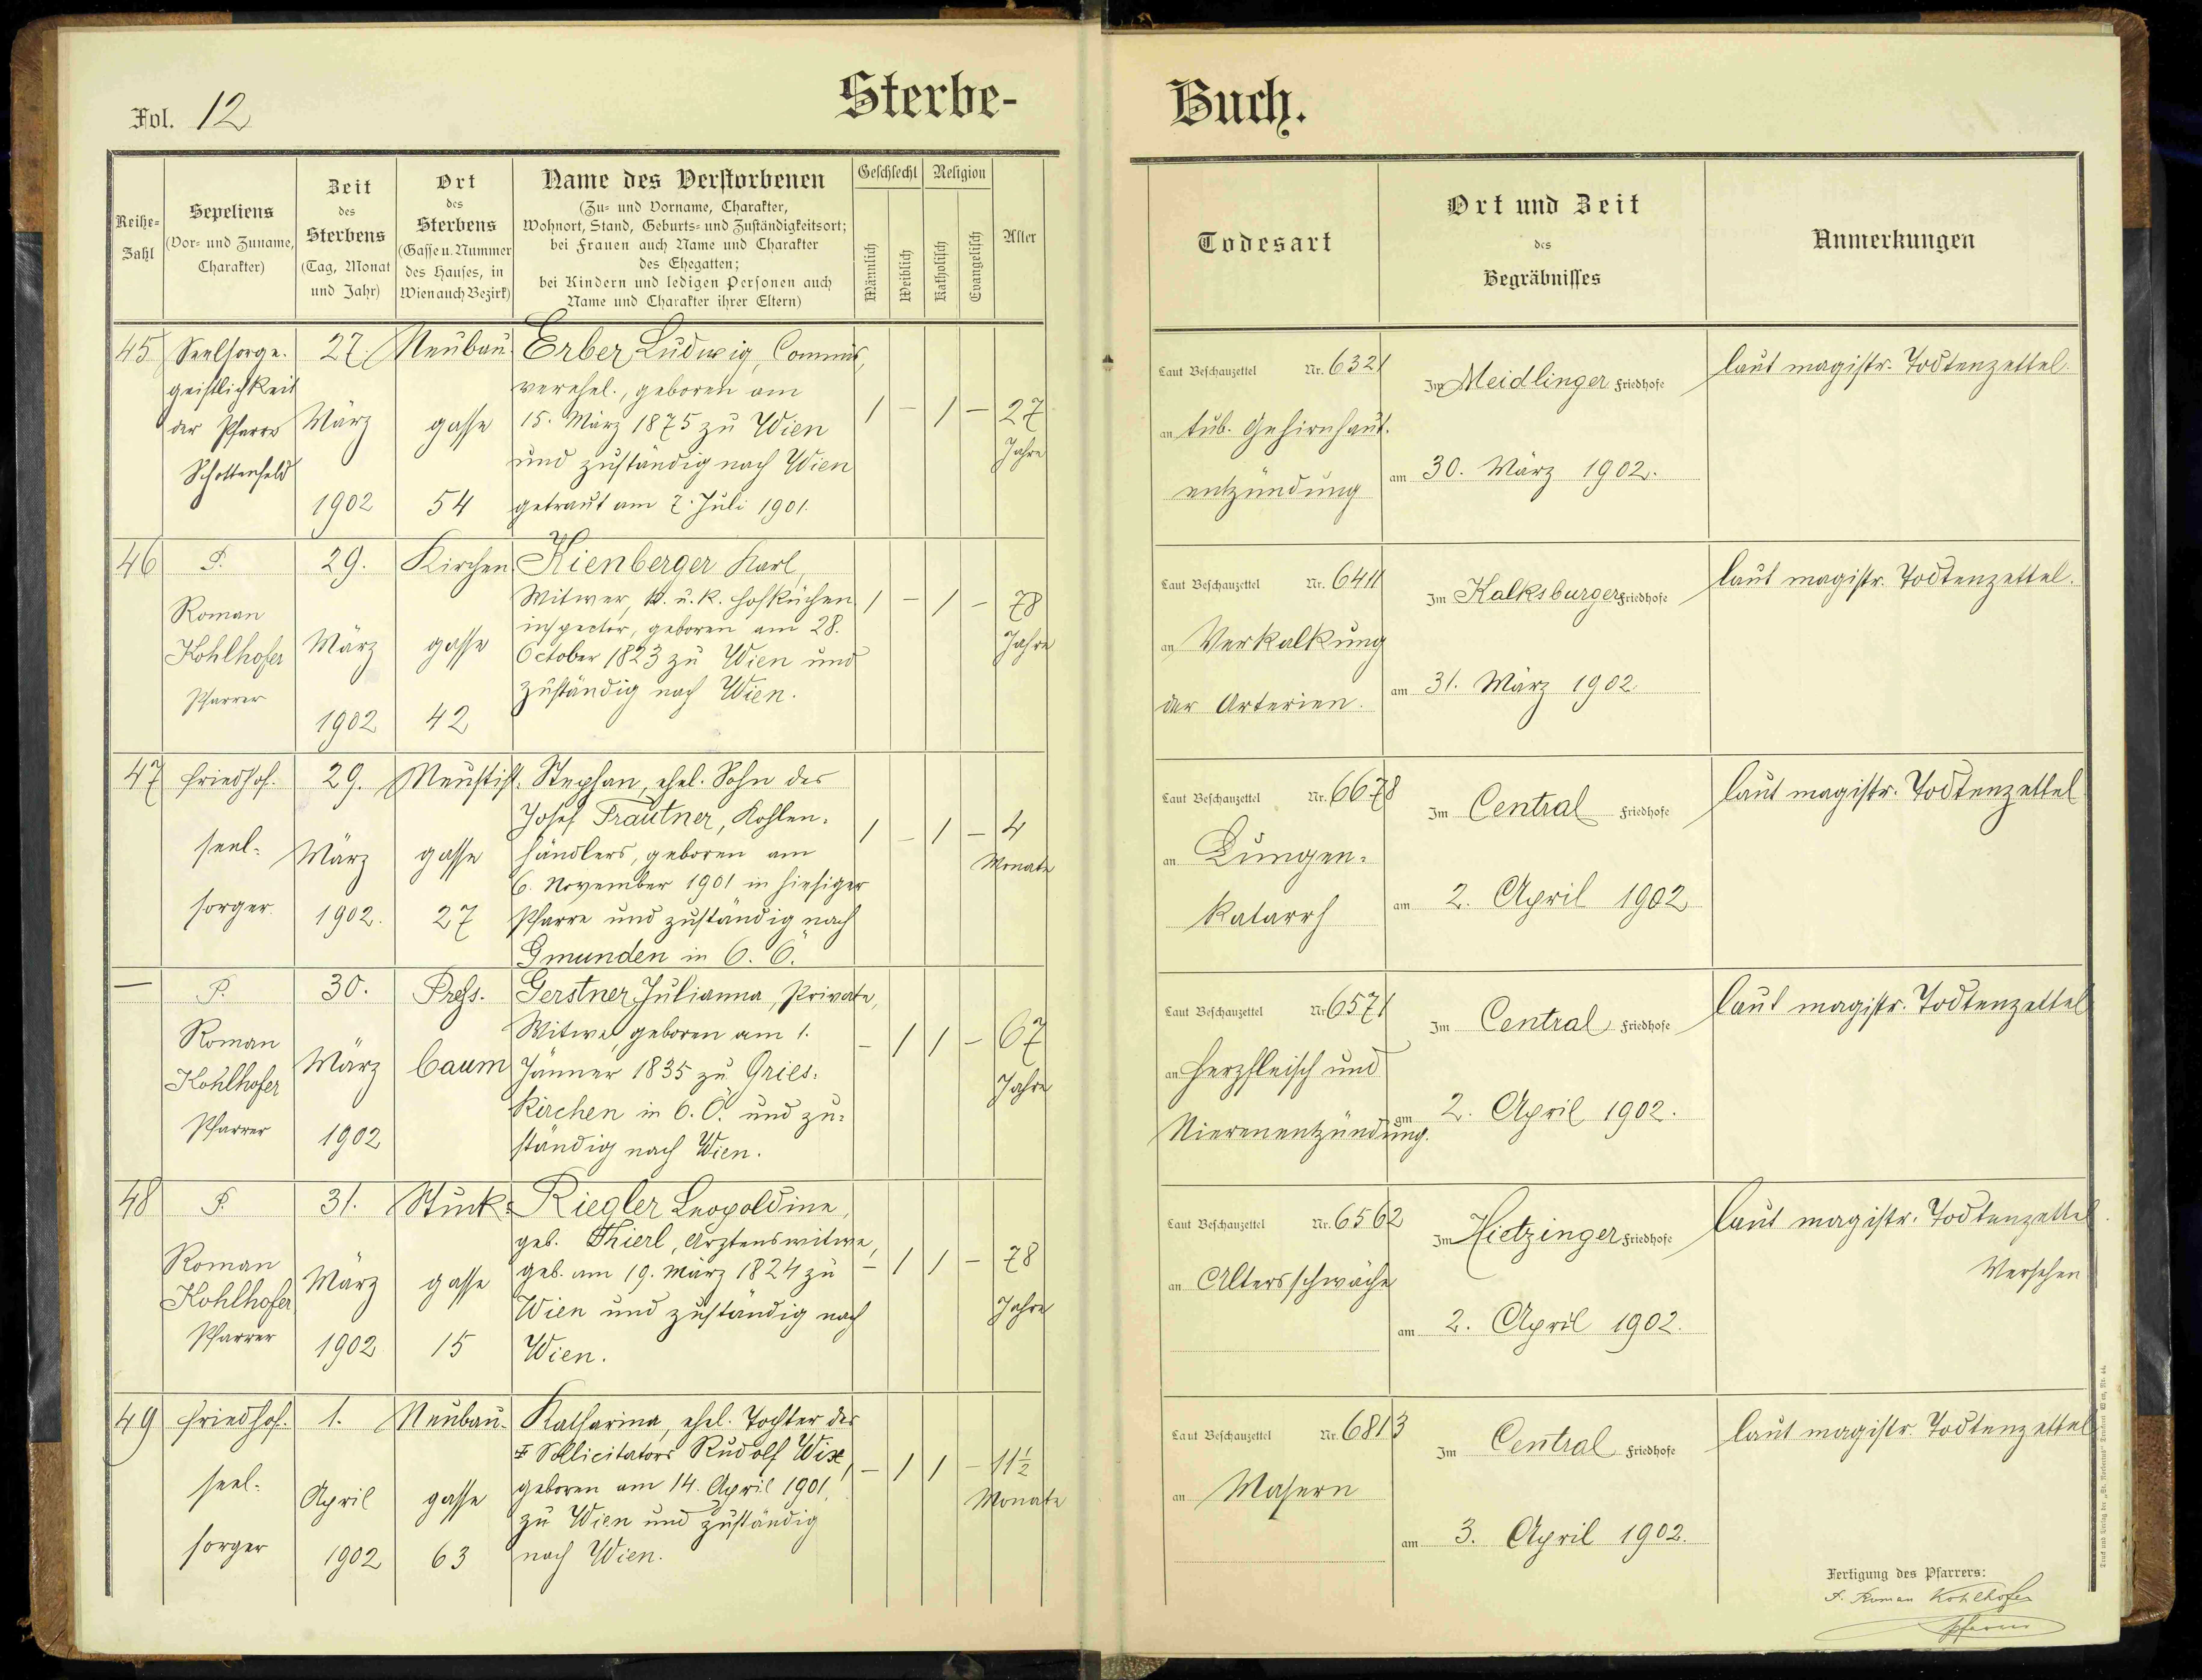 Fol. 12
Sterbe-
Buch.
Reihe-
Zahl
Sepeliens
(Vor- und Zuname,
Charakter)
Zeit
des
Sterbens
(Tag, Monat
und Jahr)
Ort
des
Sterbens
(Gasse u. Nummer
des Hauses, in
Wien auch Bezirk)
Name des Verstorbenen
(Zu- und Vorname, Charakter,
Wohnort, Stand, Geburts- und Zuständigkeitsort;
bei Frauen auch Name und Charakter
des Ehegatten;
bei Kindern und ledigen Personen auch
Name und Charakter ihrer Eltern)
Geschlecht
Männlich
Weiblich
Religion
Katholisch
Evangelisch
Alter
Todesart
Ort und Zeit
des
Begräbnisses
Anmerkungen
45
Seelsorge-
geistlichkeit
der Pfarre
Schottenfeld
27.
März
1902
Neubau-
gasse
54
Erber Ludwig, Commis,
verehel., geboren am
15. März 1875 zu Wien
und zuständig nach Wien
getraut am 7. Juli 1901.
1 – 1 – 27
Jahre
Laut Beschauzettel Nr. 6321
an tub. Gehirnhaut-
entzündung
Im Meidlinger Friedhofe
am 30. März 1902.
laut magistr. Todtenzettel.
46
P.
Roman
Kohlhofer
Pfarrer
29.
März
1902
Kirchen-
gasse
42
Kienberger Karl,
Witwer, k. u. k. Hofküchen-
inspector, geboren am 28.
October 1823 zu Wien und
zuständig nach Wien.
1 – 1 – 78
Jahre
Laut Beschauzettel Nr. 6411
an Verkalkung
der Arterien.
Im Kalksburger Friedhofe
am 31. März 1902.
laut magistr. Todtenzettel.
47
Friedhof-
seel-
sorger.
29.
März
1902.
Neustift-
gasse
27
Stephan, ehel. Sohn des
Josef Trautner, Kohlen-
händlers, geboren am
6. November 1901 in hiesiger
Pfarre und zuständig nach
Gmunden in O. Ö.
1 – 1 – 4
Monate
Laut Beschauzettel Nr. 6678
an Lungen-
katarrh
Im Central Friedhofe
am 2. April 1902
laut magistr. Todtenzettel
—
P.
Roman
Kohlhofer
Pfarrer
30.
März
1902
Press-
baum
Gerstner Julianna, Private,
Witwe, geboren am 1.
Jänner 1835 zu Gries-
kirchen in O. Ö. und zu-
ständig nach Wien.
– 1 1 – 67
Jahre
Laut Beschauzettel Nr. 6571
an Herzfleisch und
Nierenentzündung.
Im Central Friedhofe
am 2. April 1902.
laut magistr. Todtenzettel
48
P.
Roman
Kohlhofer
Pfarrer
31.
März
1902
Stuck-
gasse
15
Riegler Leopoldine,
geb. Thierl, Arztenswitwe,
geb. am 19. März 1824 zu
Wien und zuständig nach
Wien.
– 1 1 – 78
Jahre
Laut Beschauzettel Nr. 6562
an Altersschwäche
Im Hietzinger Friedhofe
am 2. April 1902.
laut magistr. Todtenzettel.
Versehen
49
Friedhof-
seel-
sorger
1.
April
1902
Neubau-
gasse
63
Katharina, ehel. Tochter des
Sollicitators Rudolf Wix,
geboren am 14. April 1901
zu Wien und zuständig
nach Wien.
– 1 1 – 11½
Monate
Laut Beschauzettel Nr. 6813
an Masern
Im Central Friedhofe
am 3. April 1902.
laut magistr. Todtenzettel
Fertigung des Pfarrers:
P. Roman Kohlhofer
Pfarrer